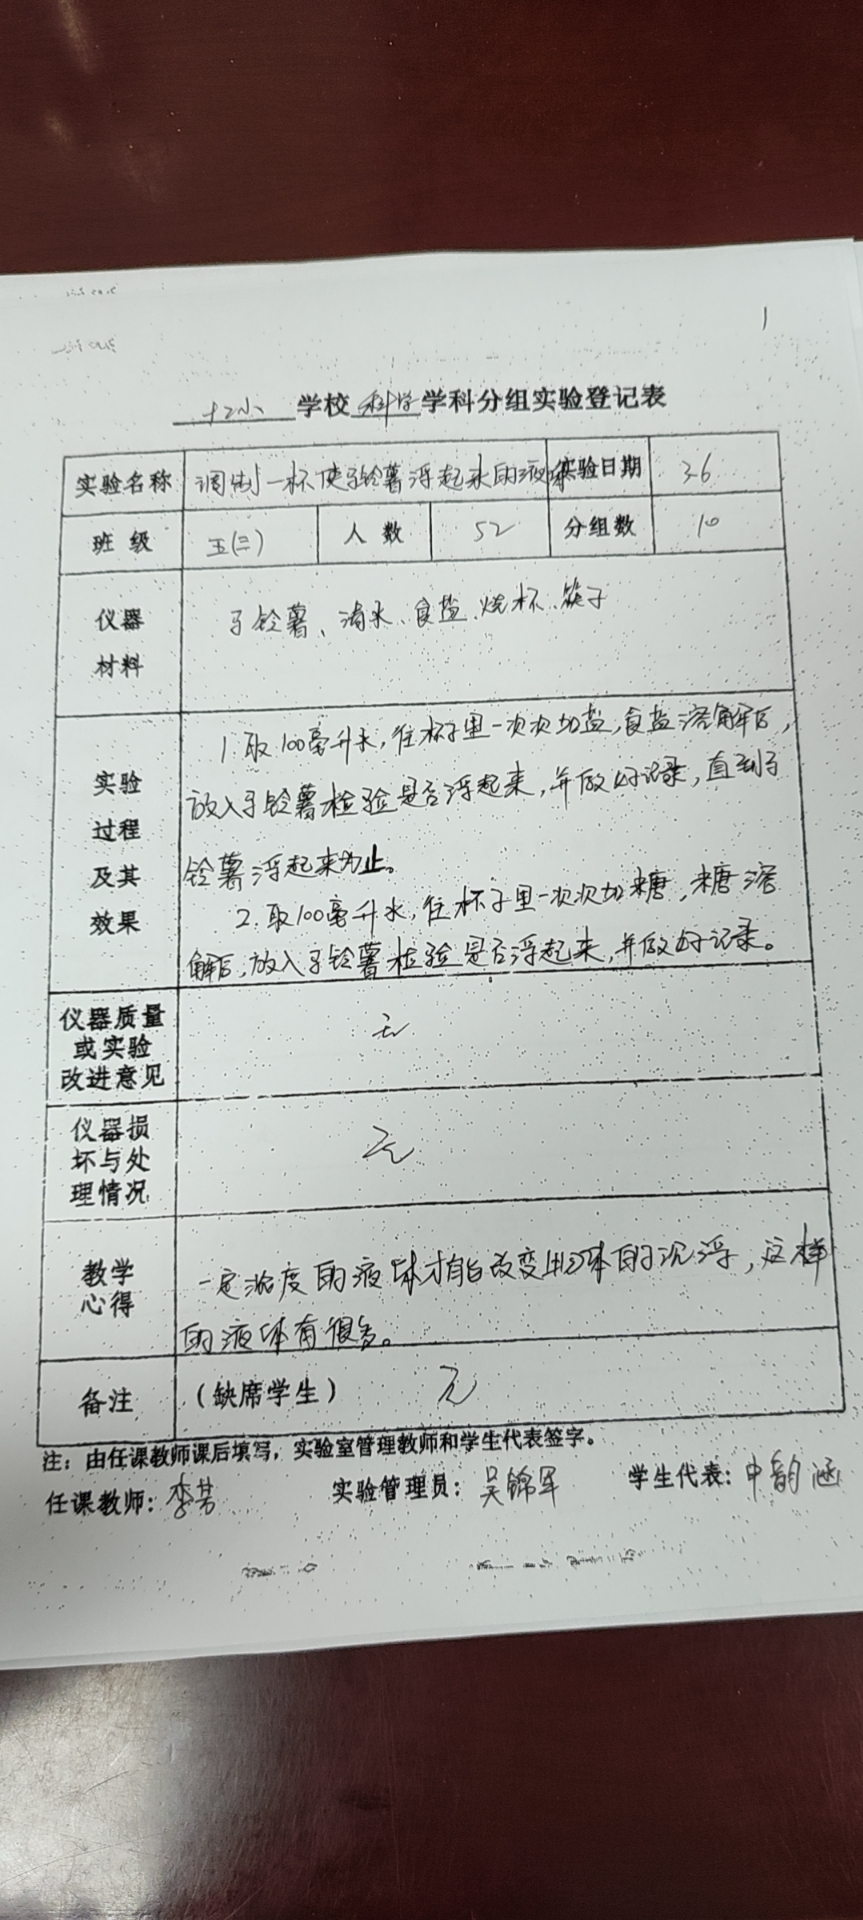 1
十二小 学校 科学 学科分组实验登记表
实验名称 调制一杯使马铃薯浮起来的液体 实验日期 3.6
班 级 五(三) 人 数 52 分组数 10
仪器 马铃薯、清水、食盐、烧杯、筷子
材料
1.取100毫升水,往杯子里一次次加盐,食盐溶解后,
实验 放入马铃薯检验是否浮起来,并做好记录,直到马
过程
及其 铃薯浮起来为止。
效果 2.取100毫升水,往杯子里一次次加糖,糖溶
解后,放入马铃薯检验是否浮起来,并做好记录。
仪器质量
或实验 无
改进意见
仪器损
坏与处 无
理情况
教学 一定浓度的液体才能改变物体的沉浮,这样
心得 的液体有很多。
备注 (缺席学生) 无
注:由任课教师课后填写,实验室管理教师和学生代表签字。
任课教师: 李芳 实验管理员: 吴锦军 学生代表: 韵涵